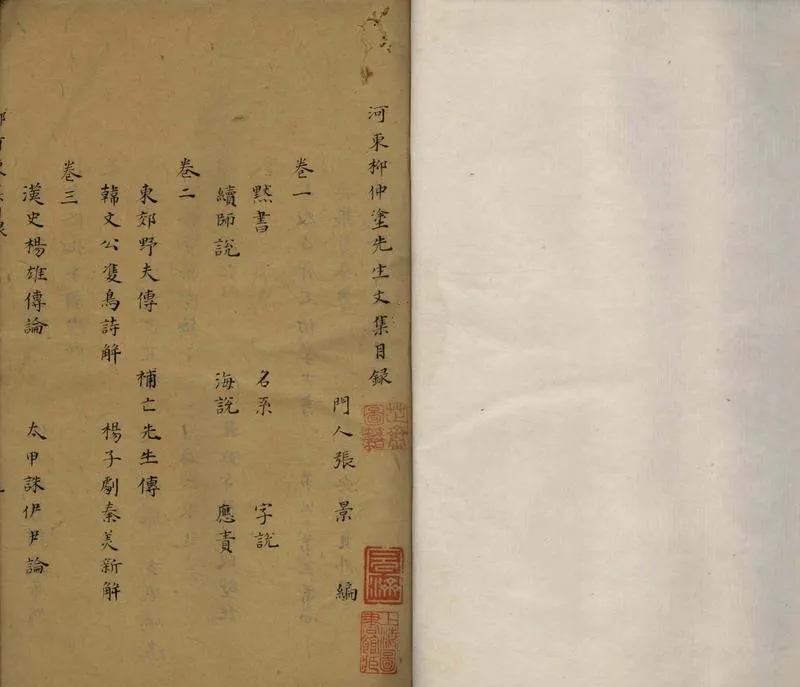 河東柳仲塗先生文集目錄
門人張景編
卷一
默書 名系 字說
續師說 海說 應責
卷二
東郊野夫傳 補亡先生傳
韓文公雙鳥詩解 楊子劇秦美新解
卷三
漢史楊雄傳論 太甲誅伊尹論
上海圖書館藏